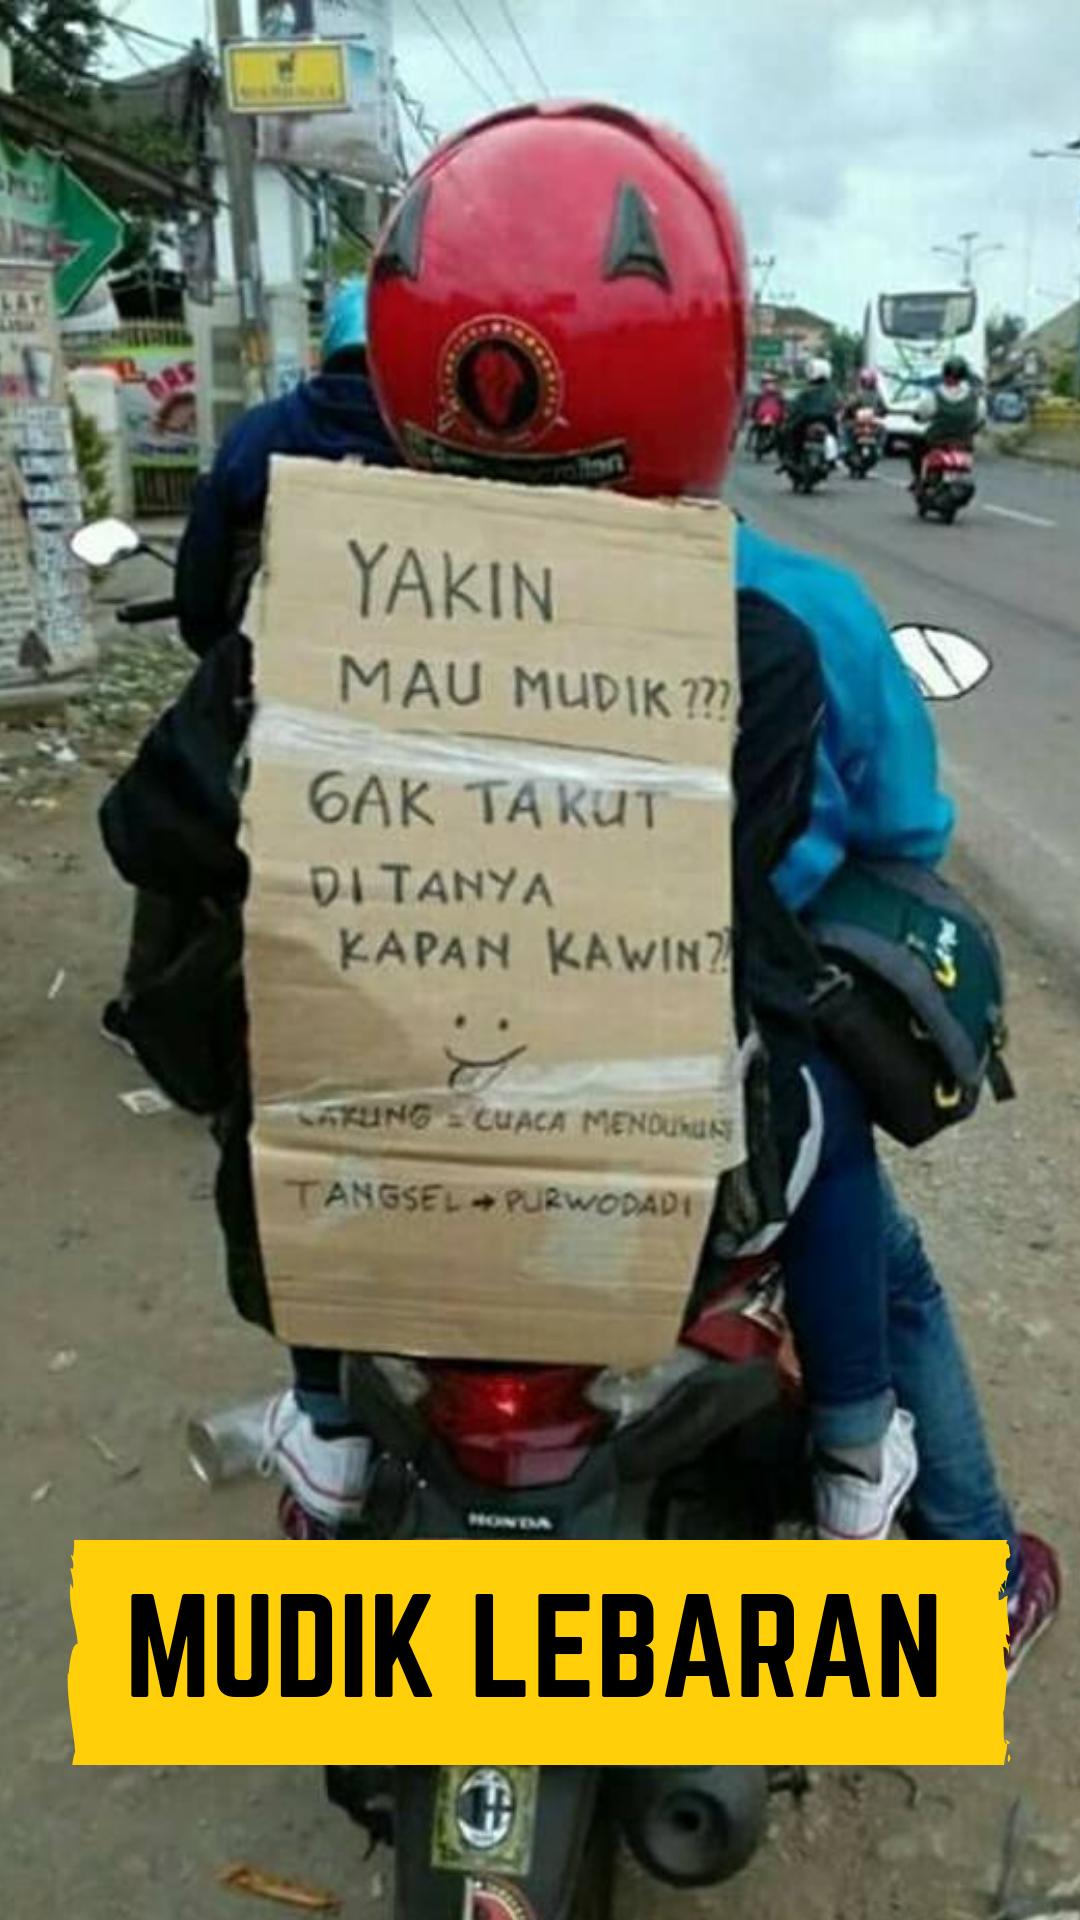 YAKIN
MAU MUDIK???
GAK TAKUT
DITANYA
KAPAN KAWIN??
CAKUNG = CUACA MENDUKUNG
TANGSEL → PURWODADI
HONDA
MUDIK LEBARAN